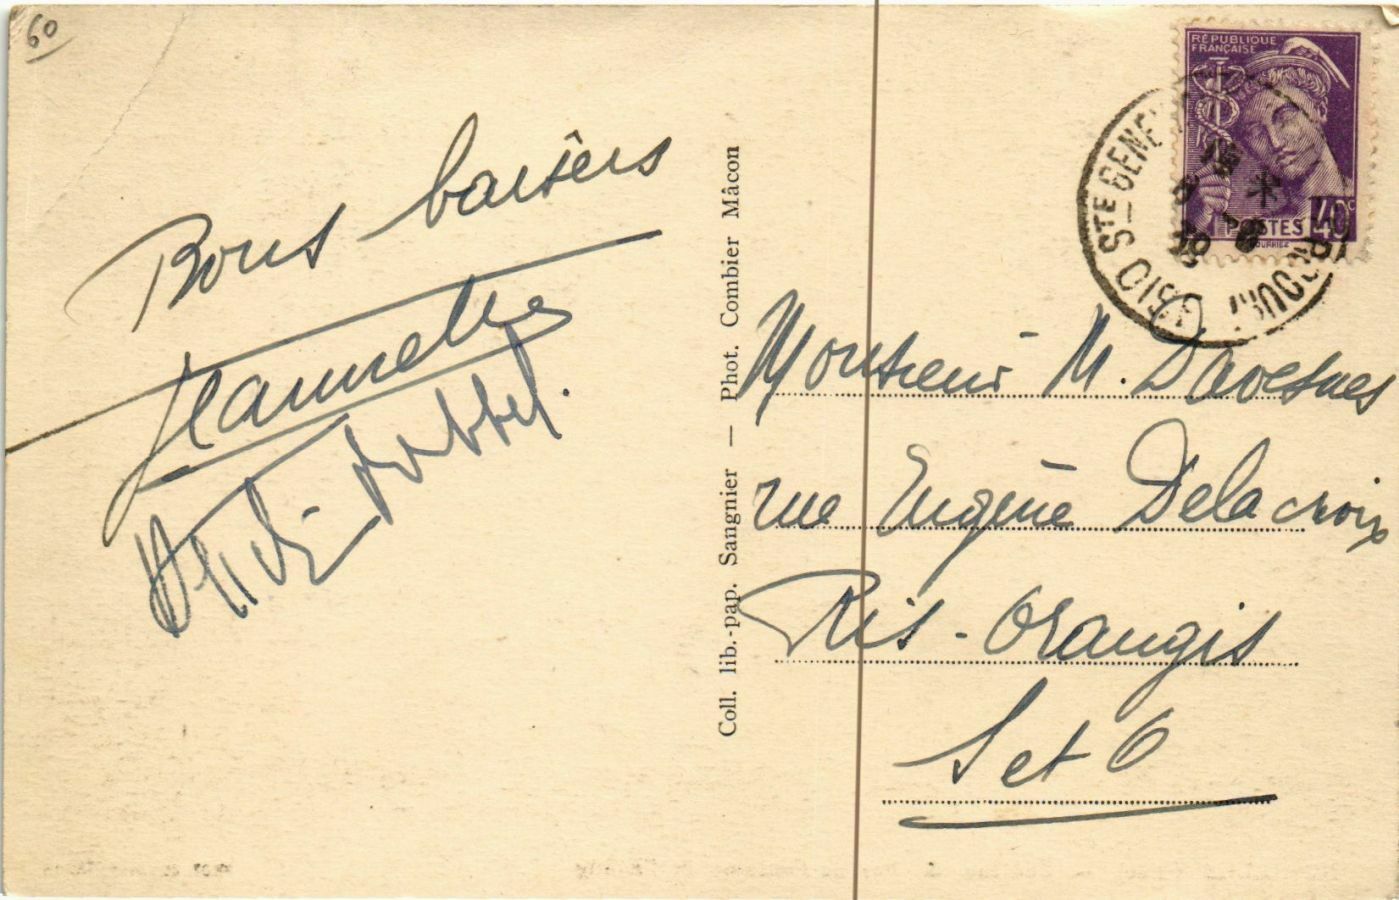 60
Bons baisers
Jeannette
Coll. lib.-pap. Sangnier — Phot. Combier Mâcon
RÉPUBLIQUE
FRANÇAISE
POSTES 40c
STE GENEV
Monsieur M. Davesnes
rue Eugène Delacroix
Ris-Orangis
S et O